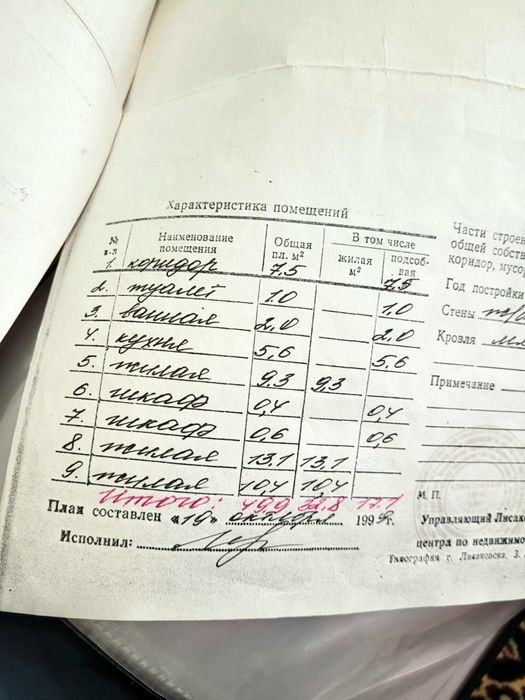 Характеристика помещений
№ п-п Наименование помещения Общая пл. м² В том числе
жилая м² подсобная
1. коридор 7,5 7,5
2. туалет 1.0 1.0
3. ванная 2,0 2.0
4. кухня 5,6 5.6
5. жилая 9,3 9,3
6. шкаф 0,4 0,4
7. шкаф 0,6 0,6
8. жилая 13,1 13,1
9. жилая 10,4 10,4
Итого: 49,9 32,8 17.1
План составлен «19» октября 199 г.
Исполнил:
Части строен
общей собств
коридор, мусо
Год постройки
Стены
Кровля
Примечание
М. П.
Управляющий Лисак
центра по недвижимо
Типография г. Лисаковска. З.